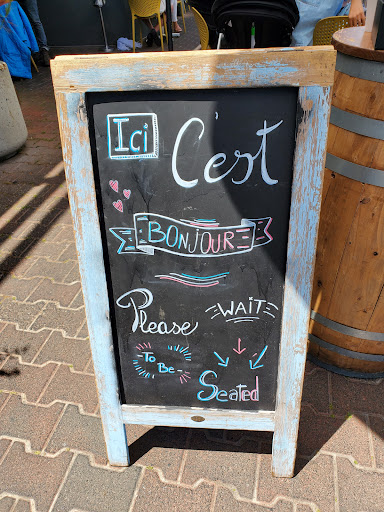 Ici C'est
BONJOUR
Please WAIT
To Be
Seated